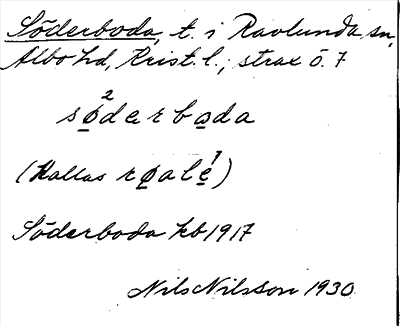 Söderboda, t. i Ravlunda sn,
Albo hd, Krist. l.; strax ö. 7
sø²derboda
(Kallas røale¹)
Söderboda kb 1917
Nils Nilsson 1930